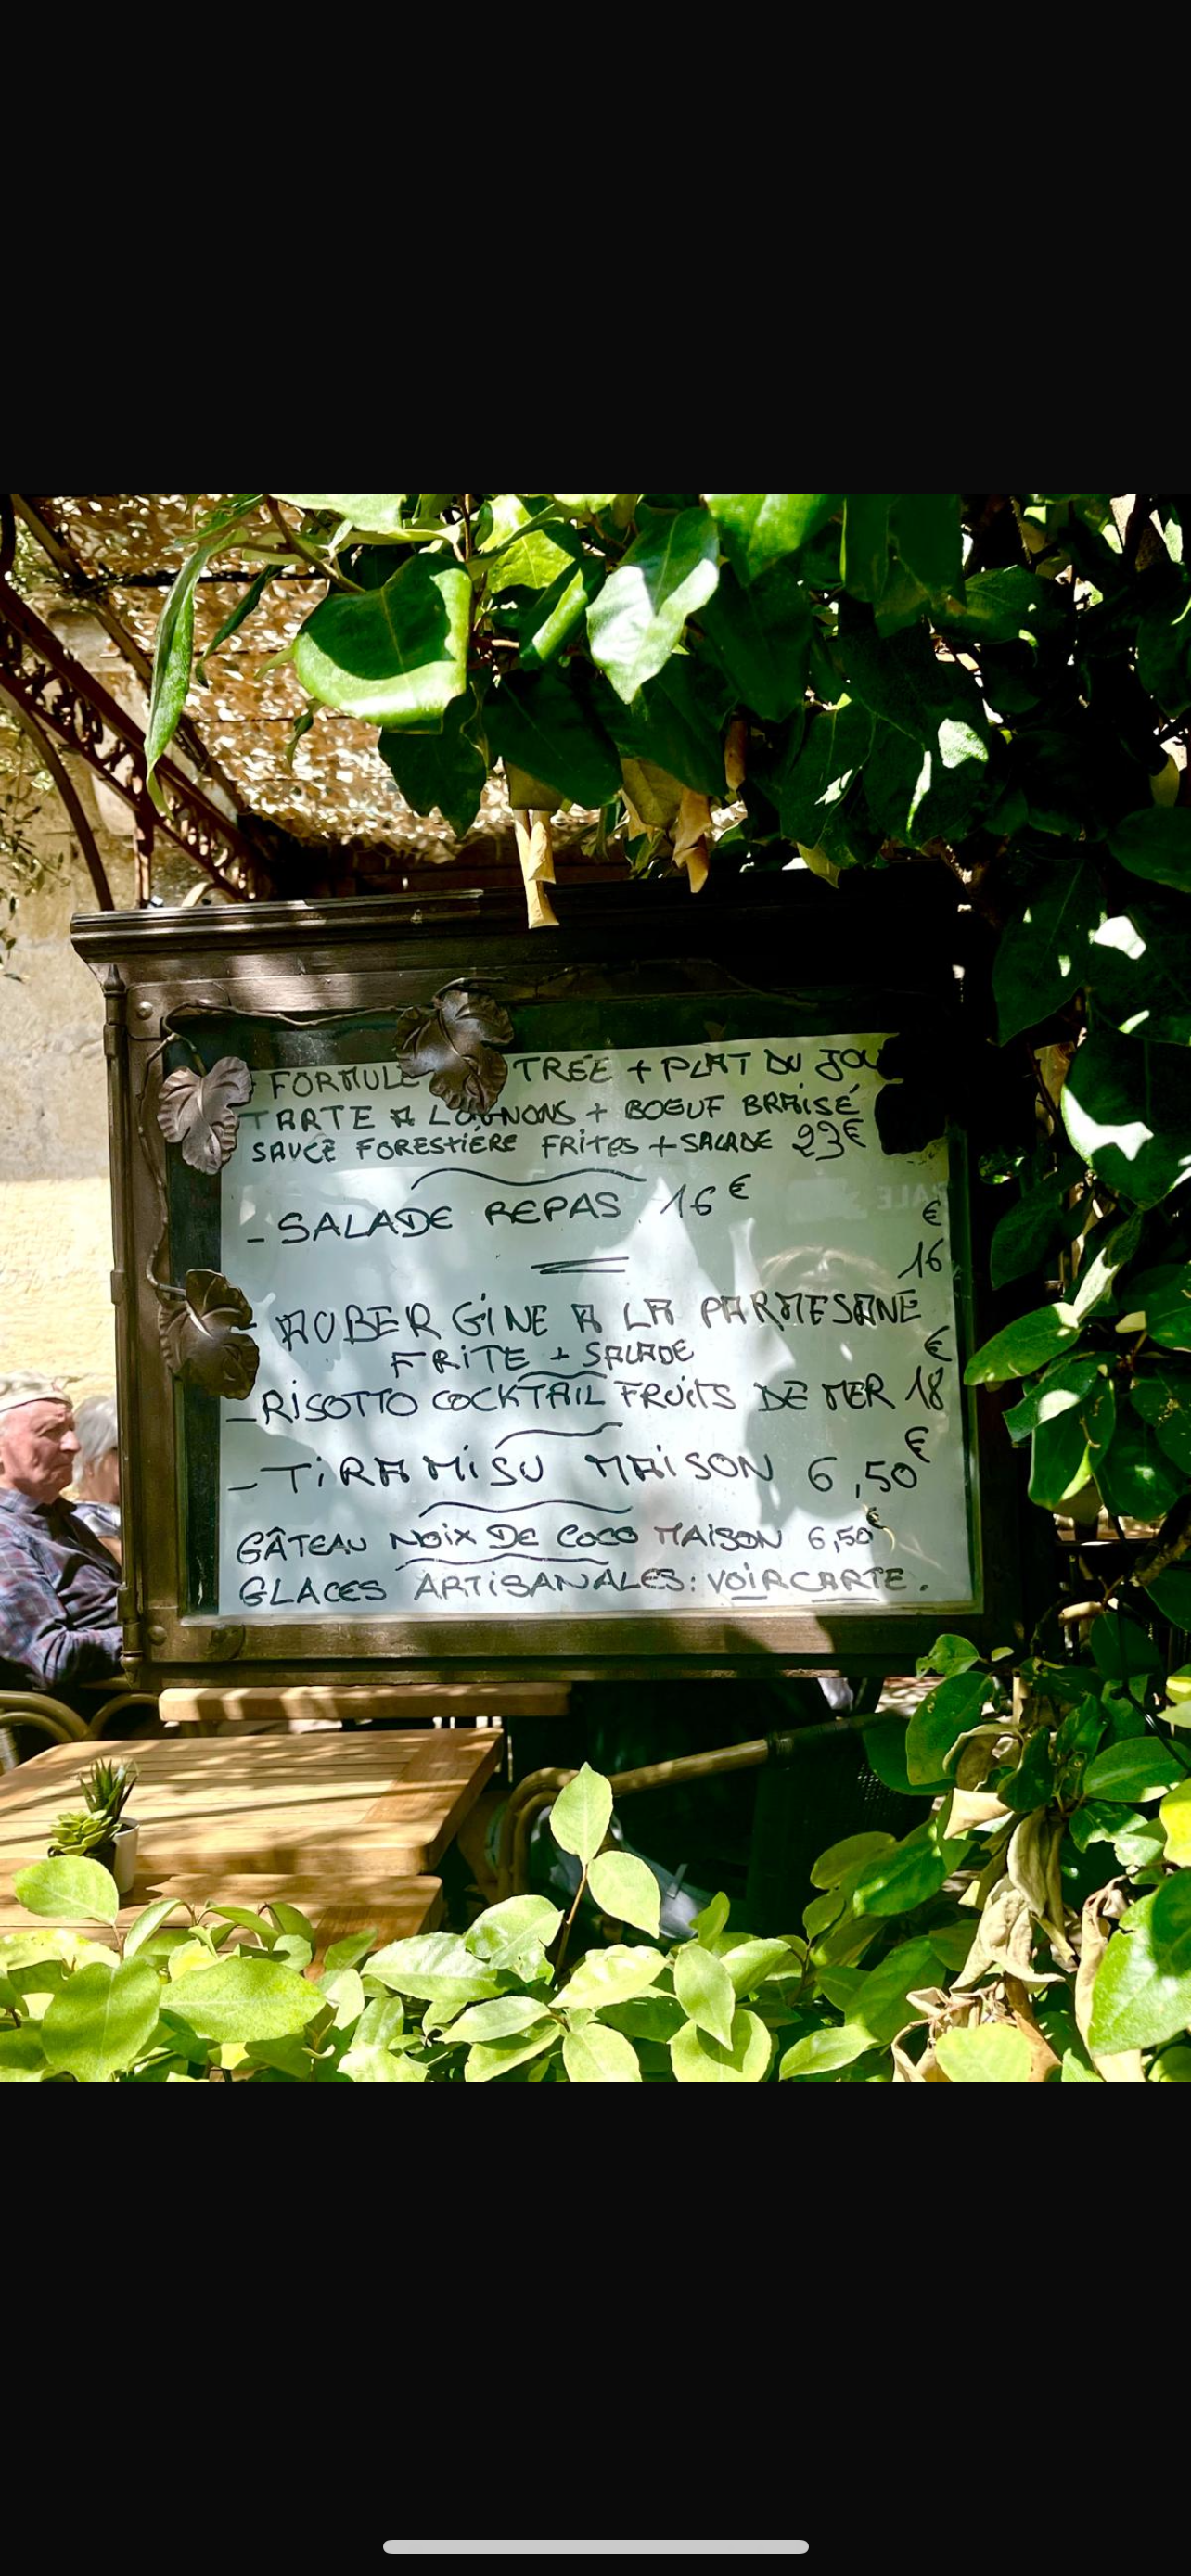 - FORMULE TREE + PLAT DU JOU
TARTE A L'OIGNONS + BOEUF BRAISÉ
SAUCE FORESTIERE FRITES + SALADE 23€
- SALADE REPAS 16€
€
16
- AUBERGINE A LA PARMESANE
FRITE + SALADE
€
- RISOTTO COCKTAIL FRUITS DE MER 18
- TIRAMISU MAISON 6,50€
GÂTEAU NOIX DE COCO MAISON 6,50€
GLACES ARTISANALES: VOIR CARTE.